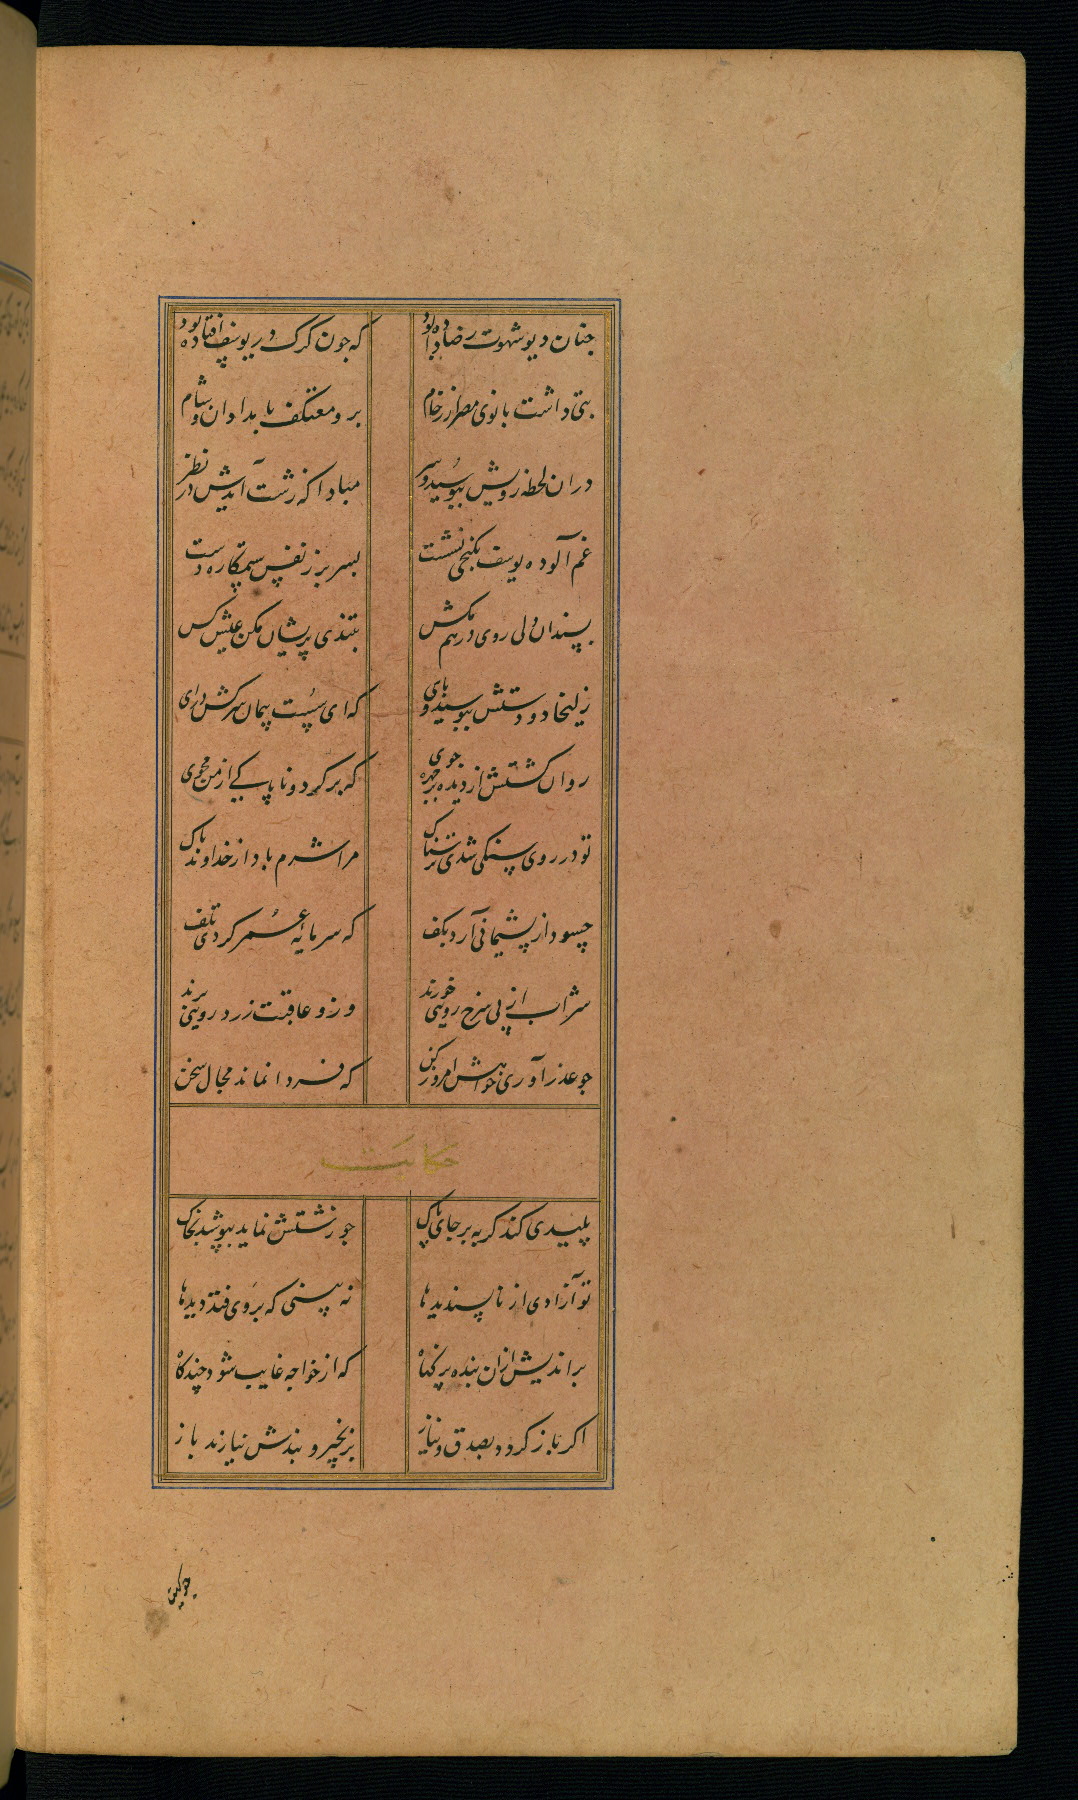 چنان دیو شهوت رضا داده بود که چون کرک در یوسف افتاده بود
بتی داشت بانوی مصر از رخام برو معتکف بامدادان و شام
دران لحظه رویش ببوسید و سر مبادا که زشت آیدش در نظر
غم آلوده یوسف بکنجی نشست بسر بر ز نفس ستمکاره دست
زلیخا دو دستش ببوسید و پای که ای سست پیمان سرکش درای
بسندان دلی روی درهم مکش بتندی پریشان مکن عیش کس
روان کشتش از دیده بر چهره جوی که برکرد و ناپاکی از من مجوی
تو در روی سنکی شدی ترسناک مرا شرم باد از خداوند پاک
چسود از پشیمانی آرد بکف که سرمایه عمر کردی تلف
شراب از پی سرخ رویی خورند وزو عاقبت زرد رویی برند
چو عذر آوری خواهش امروز کن که فردا نماند مجال سخن
حکایت
پلیدی کند کربه بر جای پاک چو زشتش نماید بپوشد بخاک
تو آزادی از ناپسندیدها نه بینی که بروی فتد دیدها
براندیش ازان بنده پر کناه که از خواجه غایب شود چند کاه
اکر باز کردد بصدق و نیاز بزنجیر و بندش نیارند باز